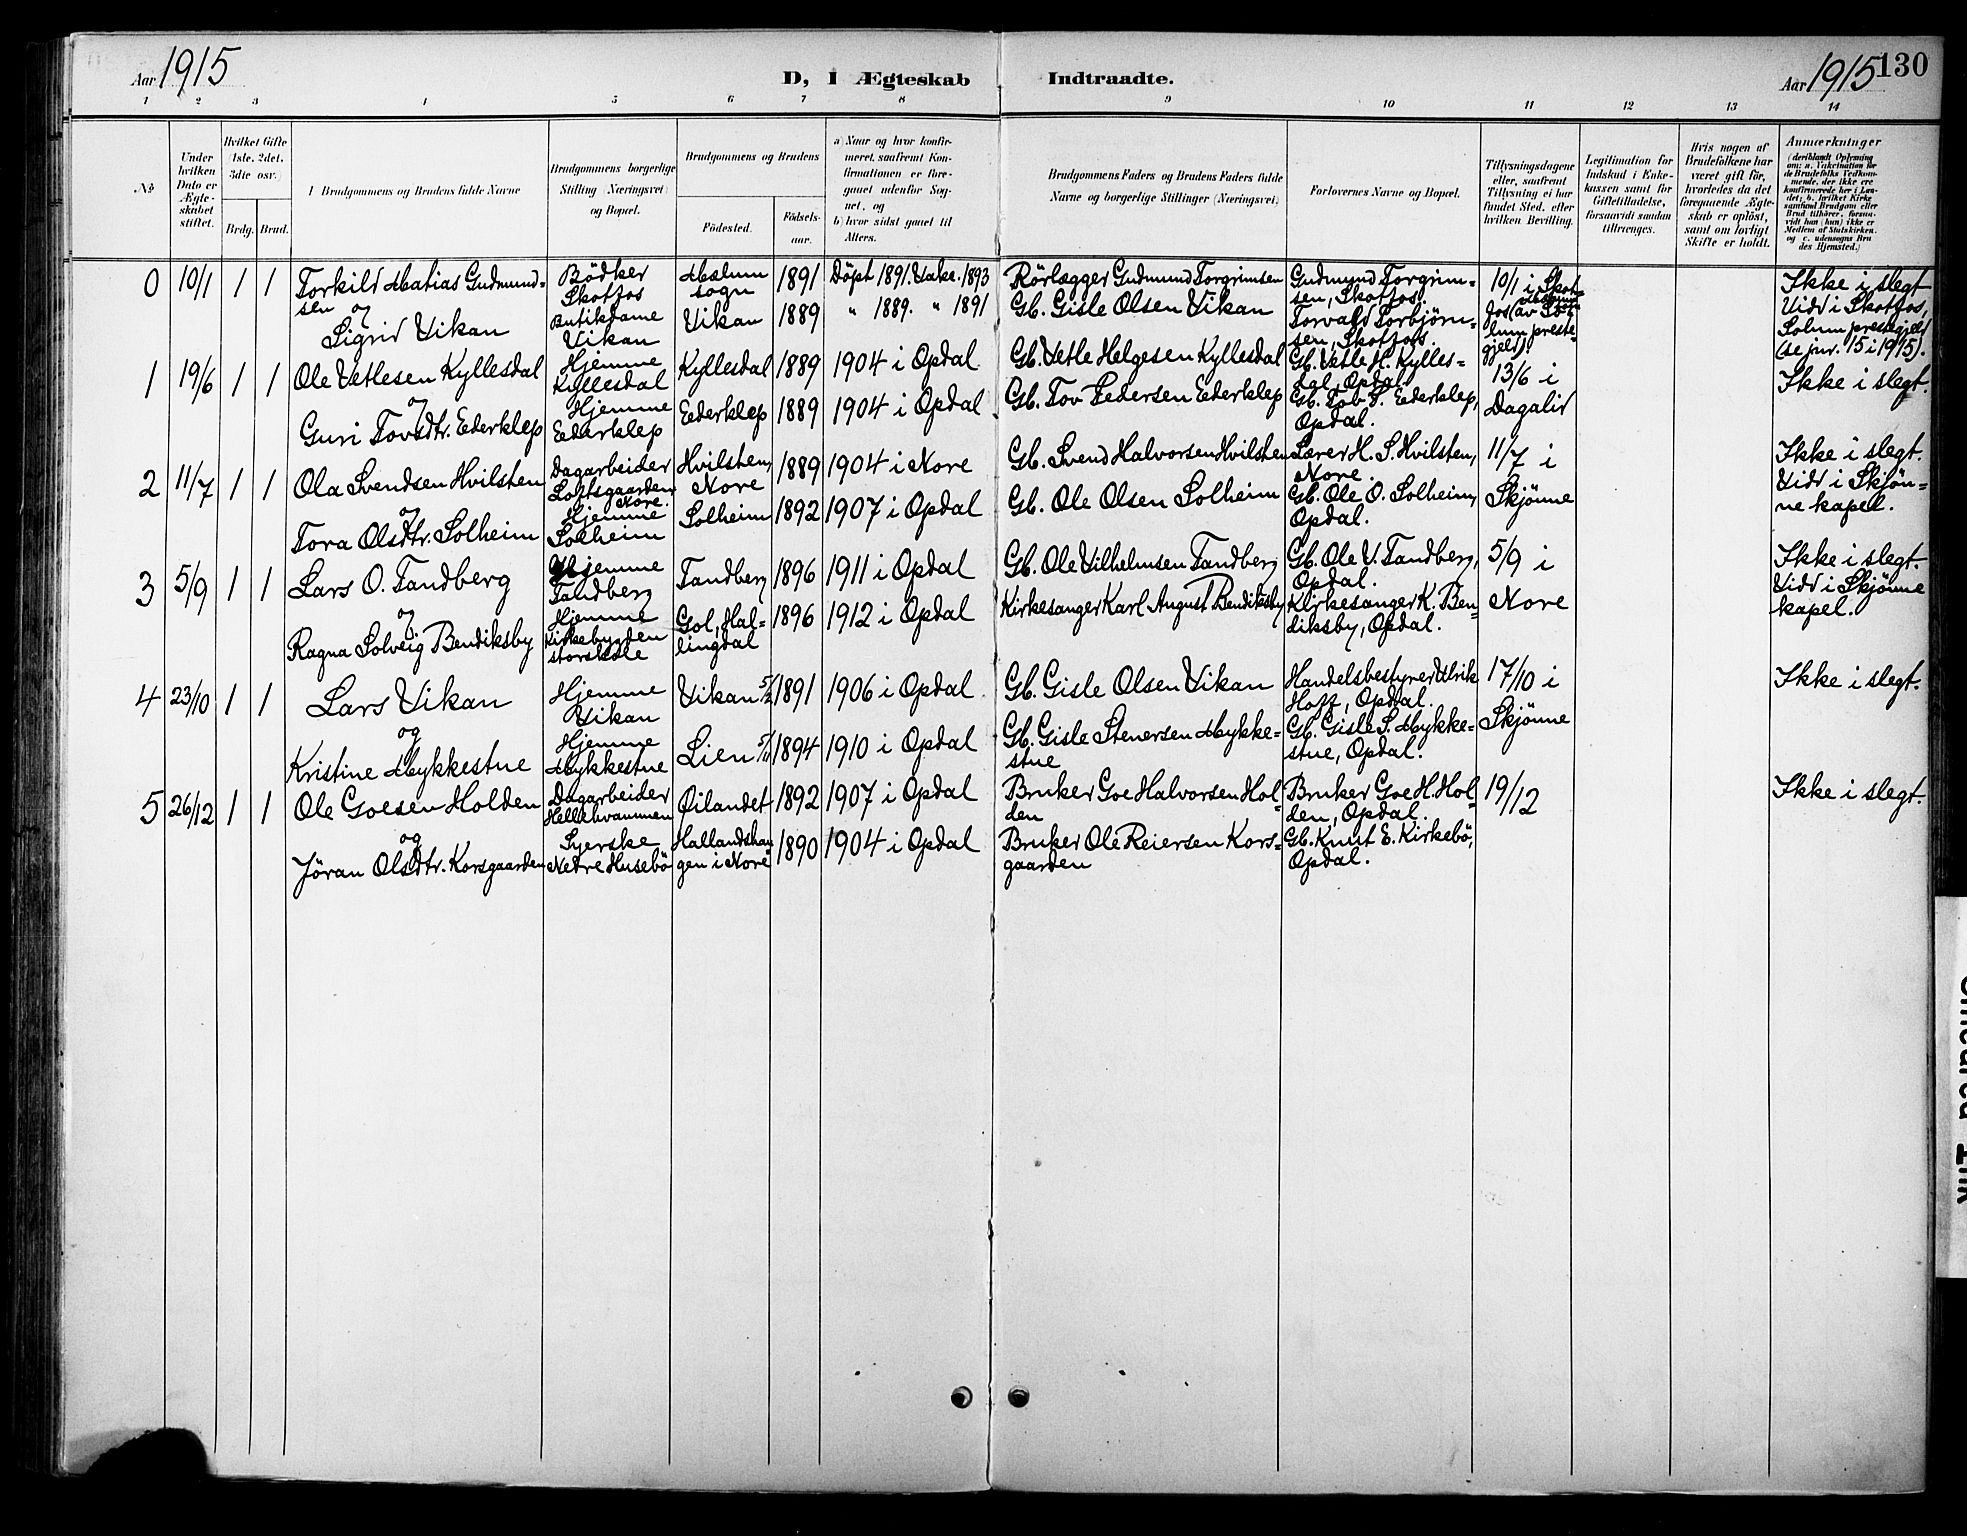 Aar 1915
D, I Ægteskab Indtraadte.
Aar 1915 130
1 2 3 4 5 6 7 8 9 10 11 12 13 14
No
Under hvilken Dato er Ægteskabet stiftet.
Hvilket Gifte (1ste, 2det, 3die osv.)
Brdg. Brud.
Brudgommens og Brudens fulde Navne
Brudgommens borgerlige Stilling (Næringsvei) og Bopæl.
Brudgommens og Brudens
Fødested. Fødsels-aar.
a) Naar og hvor konfirmeret, saafremt Konfirmationen er foregaaet udenfor Sognet, og
b) hvor sidst gaaet til Alters.
Brudgommens Faders og Brudens Faders fulde Navne og borgerlige Stillinger (Næringsvei)
Forlovernes Navne og Bopæl.
Tillysningsdagene eller, saafremt Tillysning ei har fundet Sted, efter hvilken Bevilling.
Legitimation for Indskud i Enkekassen samt for Giftetilladelse, forsaavidt saadan tiltrænges.
Hvis nogen af Brudefolkene har været gift før, hvorledes da det foregaaende Ægteskab er opløst, samt om lovligt Skifte er holdt.
Anmærkninger
(deriblandt Oplysning om: a. Vakcination for de Brudefolks Vedkommende, der ikke ere konfirmerede her i Landet; b. hvilket Kirkesamfund Brudgom eller Brud tilhører, forsaavidt han (hun) ikke er Medlem af Statskirken, og c. udensogns Brudes Hjemsted.)
0 10/1 1 1 Torkild Matias Gudmundsen Bödker Skotfos Mælum sogn 1891 Döpt 1891. Vakc. 1893 Rörlægger Gudmund Torgrimsen Gudmund Torgrimsen, Skotfos. 10/1 i Skotfos (av Solum prestegjeld). Ikke i slegt
og
Sigrid Vikan Butikdame Vikan Vikan 1889 " 1889. " 1891 Gb. Gisle Olsen Vikan Torvald Torbjørnsen, Skotfos. Vidd i Skotfos, Solum prestegjeld (se jnr. 15 i 1915).
1 19/6 1 1 Ole Vetlesen Kyllesdal Hjemme Kyllesdal Kyllesdal 1889 1904 i Opdal Gb. Vetle Helgesen Kyllesdal Gb. Vetle H. Kyllesdal, Opdal. 13/6 i Dagalid Ikke i slegt.
og
Guri Tovsdtr. Ederklep Hjemme Ederklep Ederklep 1889 1904 i Opdal Gb. Tov Pedersen Ederklep Gb. Tov P. Ederklep, Opdal.
2 11/7 1 1 Ola Svendsen Hvilsten Dagarbeider Loftsgaarden Nore. Hvilsten, Nore 1889 1904 i Nore Gb. Svend Halvorsen Hvilsten Lærer H. S. Hvilsten, Nore. 11/7 i Skjønne Ikke i slegt. Vidd i Skjønne kapel.
og
Tora Olsdtr. Solheim Hjemme Solheim Solheim 1892 1907 i Opdal Gb. Ole Olsen Solheim Gb. Ole O. Solheim, Opdal.
3 5/9 1 1 Lars O. Tandberg Hjemme Tandberg Tandberg 1896 1911 i Opdal Gb. Ole Vilhelmsen Tandberg Gb. Ole V. Tandberg, Opdal. 5/9 i Nore Ikke i slegt. Vidd i Skjønne kapel.
og
Ragna Solveig Bendiksby Hjemme Kirkebygden storskole Gol, Hallingdal 1896 1912 i Opdal Kirkesanger Karl August Bendiksby Kirkesanger K. Bendiksby, Opdal.
4 23/10 1 1 Lars Vikan Hjemme Vikan Vikan 5/2 1891 1906 i Opdal Gb. Gisle Olsen Vikan Handelsbestyrer Ulrik Hoff, Opdal. 17/10 i Skjönne Ikke i slegt.
og
Kristine Mykkestue Hjemme Mykkestue Lien 1894 1910 i Opdal Gb. Gisle Stenersen Mykkestue Gb. Gisle S. Mykkestue, Opdal.
5 26/12 1 1 Ole Goesen Holden Dagarbeider Hellehvammen Øilandet 1892 1907 i Opdal Bruker Goe Halvorsen Holden Bruker Goe H. Holden, Opdal. 19/12 Ikke i slegt.
og
Jöran Olsdtr. Korsgaarden Syerske Nedre Husebö Hallandshaugen i Nore 1890 1904 i Opdal Bruker Ole Reiersen Korsgaarden Gb. Knut E. Kirkebö, Opdal.